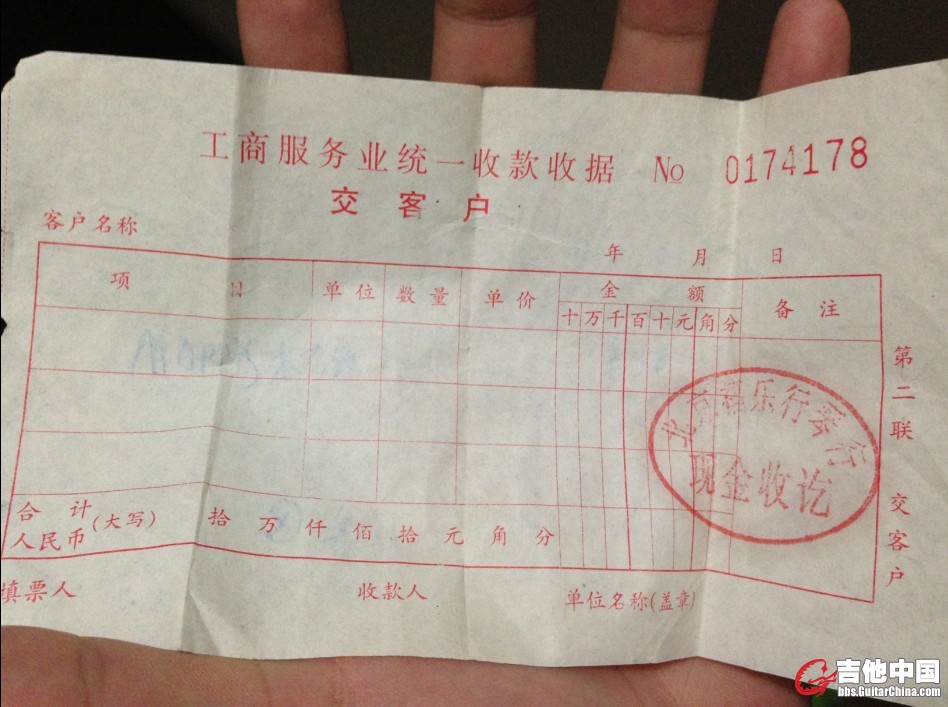 工商服务业统一收款收据 № 0174178
交客户
客户名称
年 月 日
项 目 单位 数量 单价 金 额 备 注
十 万 千 百 十 元 角 分
第二联 交客户
北京 乐行琴行
现金收讫
合 计 (大写) 拾 万 仟 佰 拾 元 角 分
人民币
填票人 收款人 单位名称(盖章)
吉他中国
bbs.GuitarChina.com